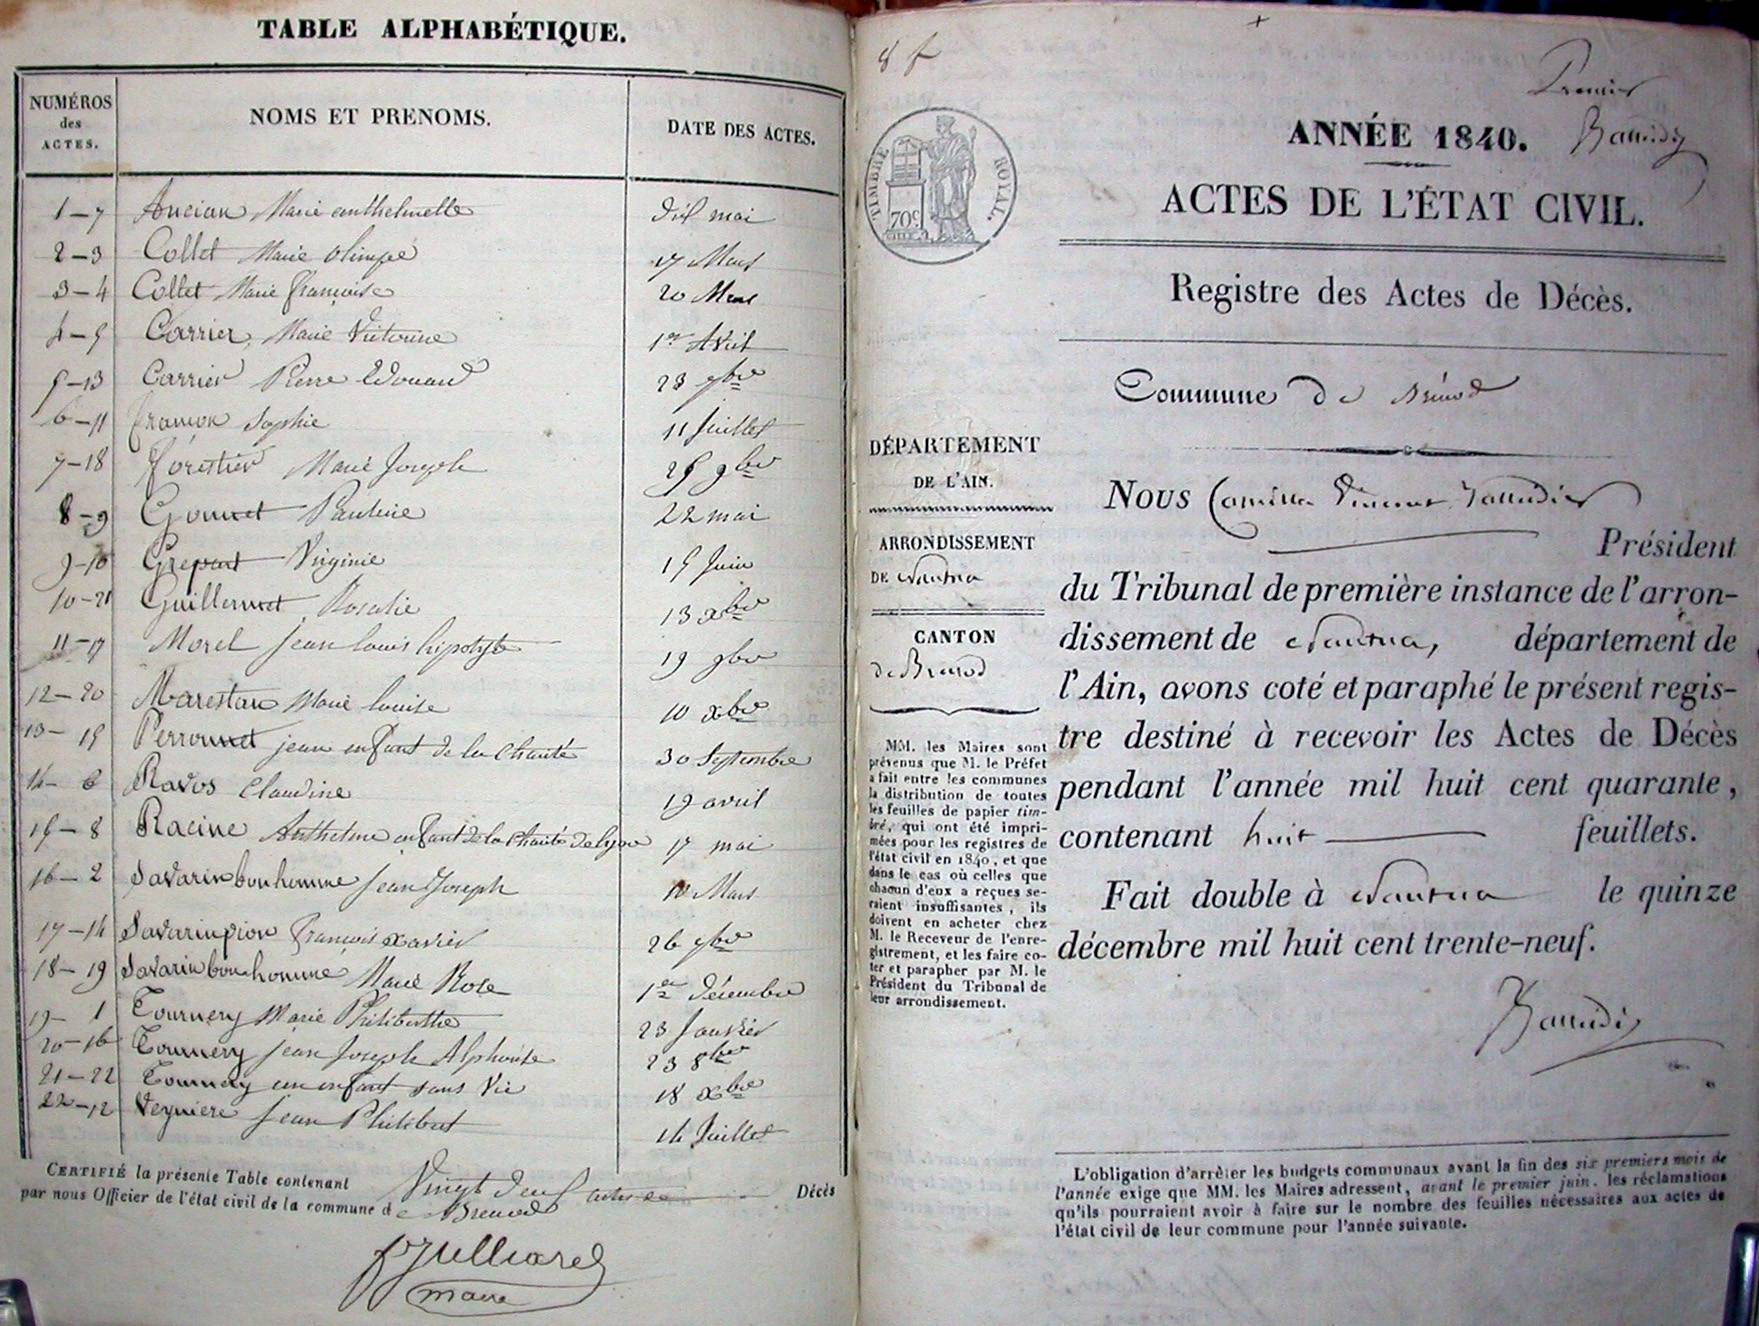 TABLE ALPHABÉTIQUE.
NUMÉROS des ACTES. NOMS ET PRENOMS. DATE DES ACTES.
1-7 Ancian Marie anthelmette dix mai
2-3 Collet Marie olimpe 17 Mars
3-4 Collet Marie françoise 20 Mars
4-5 Carrier, Marie Victorine 1er Avril
5-13 Carrier Pierre Edouard 23 7bre
6-11 françon Sophie 11 Juillet
7-18 Forestier Marie Joseph 25 9bre
8-9 Gonnet Pauline 22 mai
9-10 Grepont Virginie 15 Juin
10-21 Guillermet Rosalie 13 xbre
11-17 Morel Jean louis hipolyte 19 9bre
12-20 Marestan Marie louise 10 xbre
13-15 Perronnet jean enfant de la Charité 30 Septembre
14-6 Ravos Claudine 19 avril
15-8 Racine Anthelme enfant de la Charité de lyon 17 mai
16-2 Savarin bonhomme Jean Joseph 10 Mars
17-14 Savarin pion françois xavier 26 7bre
18-19 Savarin bonhomme Marie Rose 1er Décembre
19-1 Tournery Marie Philiberthe 23 Janvier
20-16 Tournery Jean Joseph Alphonse 23 8bre
21-22 Tournery un enfant sans Vie 18 xbre
22-12 Veyniere Jean Philibert 14 Juillet
CERTIFIÉ la présente Table contenant Vingt deux actes de Décès
par nous Officier de l'état civil de la commune de Brenod
Julliard
maire
8 f
Premier
TIMBRE ROYAL.
70c
ANNÉE 1840.
ACTES DE L'ÉTAT CIVIL.
Registre des Actes de Décès.
Commune de Brénod
DÉPARTEMENT
DE L'AIN.
ARRONDISSEMENT
DE Nantua
CANTON
de Brenod
MM. les Maires sont
prévenus que M. le Préfet
a fait entre les communes
la distribution de toutes
les feuilles de papier tim-
bré, qui ont été impri-
mées pour les registres de
l'état civil en 1840, et que
dans le cas où celles que
chacun d'eux a reçues se-
raient insuffisantes, ils
doivent en acheter chez
M. le Receveur de l'enre-
gistrement, et les faire co-
ter et parapher par M. le
Président du Tribunal de
leur arrondissement.
Nous Camille Vincent
Président
du Tribunal de première instance de l'arron-
dissement de Nantua, département de
l'Ain, avons coté et paraphé le présent regis-
tre destiné à recevoir les Actes de Décès
pendant l'année mil huit cent quarante,
contenant huit feuillets.
Fait double à Nantua le quinze
décembre mil huit cent trente-neuf.
L'obligation d'arrêter les budgets communaux avant la fin des six premiers mois de
l'année exige que MM. les Maires adressent, avant le premier juin, les réclamations
qu'ils pourraient avoir à faire sur le nombre des feuilles nécessaires aux actes de
l'état civil de leur commune pour l'année suivante.